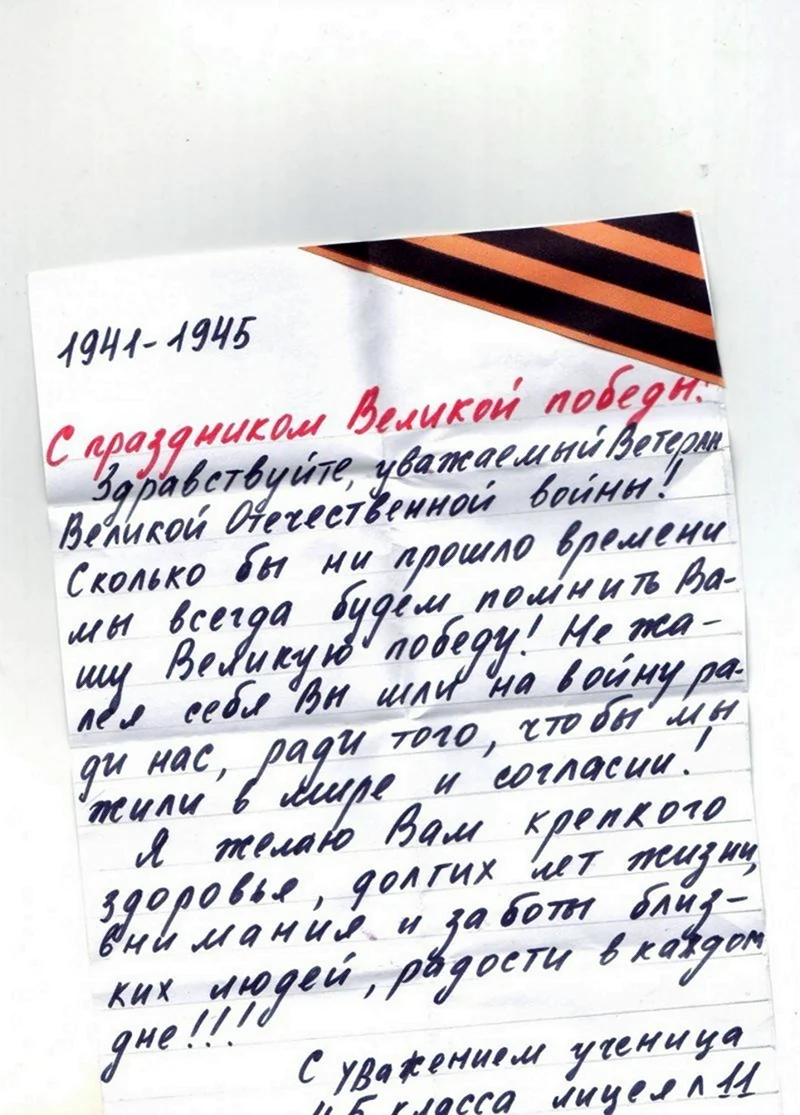 1941-1945
С праздником Великой победы!
Здравствуйте, уважаемый Ветеран
Великой Отечественной войны!
Сколько бы ни прошло времени
мы всегда будем помнить Ва-
шу Великую победу! Не жа-
лея себя Вы шли на войну ра-
ди нас, ради того, чтобы мы
жили в мире и согласии!
Я желаю Вам крепкого
здоровья, долгих лет жизни,
внимания и заботы близ-
ких людей, радости в каждом
дне!!!
С уважением ученица
4 Б класса лицея 11